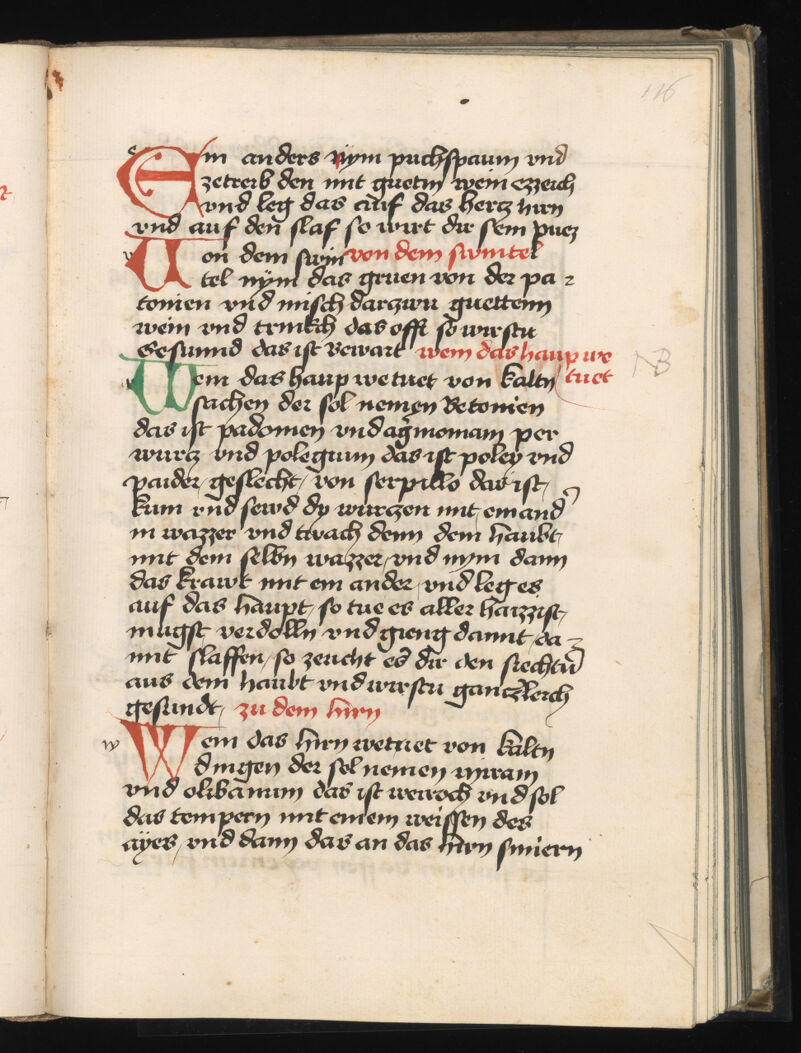 116
Ein anders nym puchspaum vnd
zetreib den mit guetm wein ezzeich
vnd leg das auf das hercz hirn
vnd auf den slaf so wirt dir sein puez
Uon dem swin von dem swintel
tel nym das gruen von der pa
tonien vnd misch darczwu guettenn
wein vnd trinkch das offt so wirstu
Gesunnd das ist bewart wem das haup we
tuet
NB
Wem das haup we tuet von kaltn
sachen der sol nemen Betonien
das ist padonien vnd agrimoniam per
wurcz vnd polegium das ist poley vnd
paider geslecht von serpillo das ist
kum vnd sewd dy wurczen mit einand
in wazzer vnd twach denn dem haubt
mit dem selbn wazzer vnd nym dann
das krawt mit ein ander vnd leg es
auf das haupt so tue es aller haizzist
mugst verdolln vnd gieng damit da
mit slaffen so zeucht es dir den siechtu
aus dem haubt vnd wirstu ganczleich
gesundt zu dem hirn
w
Wem das hirn we tuet von kaltn
dingen der sol nemen mirram
vnd olibanum das ist weiroch vnd sol
das tempern mit einem weissen des
ayes vnd dann das an das hirn smiern